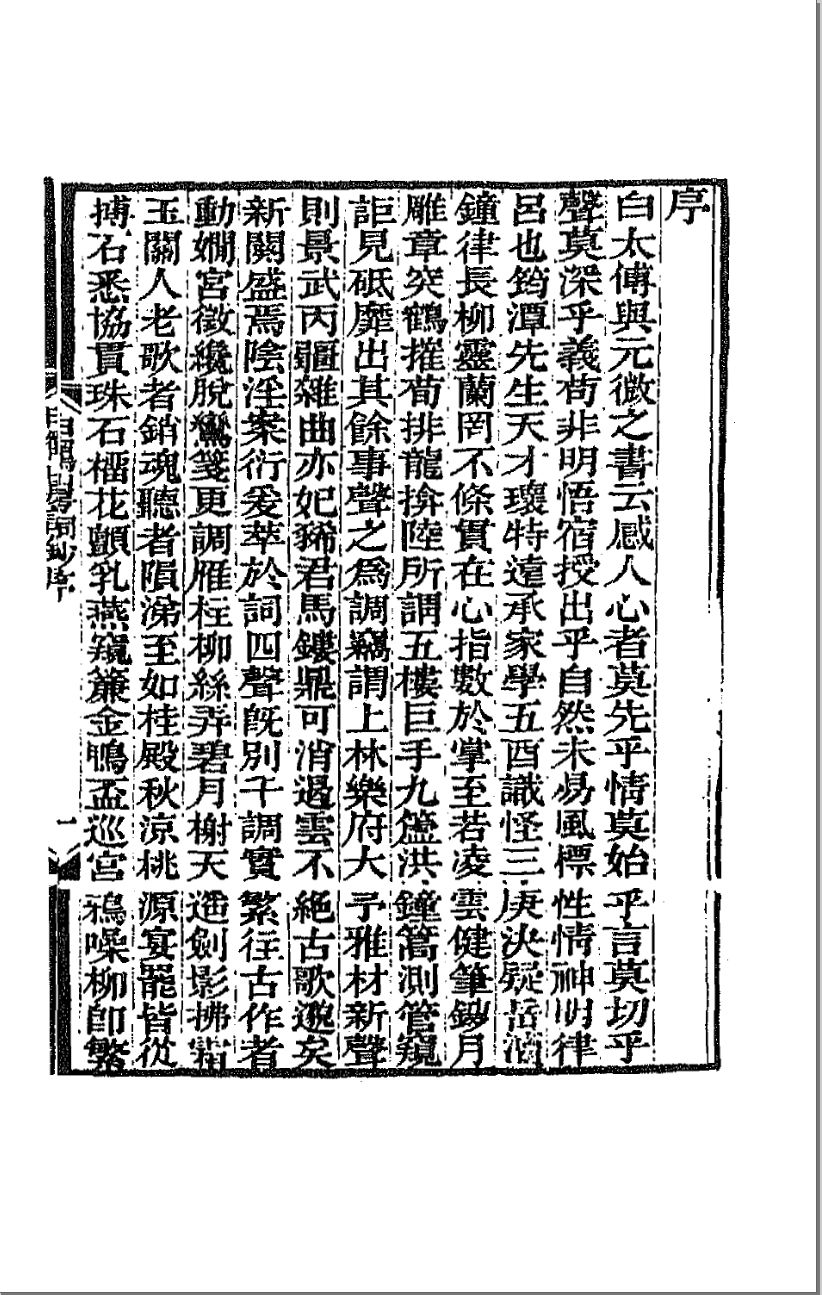 序
白太傅與元微之書云感人心者莫先乎情莫始乎言莫切乎
聲莫深乎義苟非明悟宿授出乎自然未易風標性情神明律
呂也筠潭先生天才瓌特遠承家學五酉識怪三庚決疑岳
鐘律長柳靈蘭罔不條貫在心指數於掌至若凌雲健筆鏤月
雕章突鶴摧荀排龍揜陸所謂五樓巨手九簋洪鐘籌測管窺
詎見砥靡出其餘事聲之為調竊謂上林樂府大予雅材新聲
則景武丙疆雜曲亦妃豨君馬鏤鼎可消遏雲不絕古歌邈矣
新闋盛焉陰淫案衍爰萃於詞四聲旣別千調實繁往古作者
動嫺宮徵纔脫鸞箋更調雁柱柳絲弄碧月榭天遙劍影拂霜
玉關人老歌者銷魂聽者隕涕至如桂殿秋涼桃源宴罷皆從
搏石悉協貫珠石榴花顫乳燕窺簾金鴨盃巡宮鴉噪柳卽繁
白鶴山房詞鈔序
一